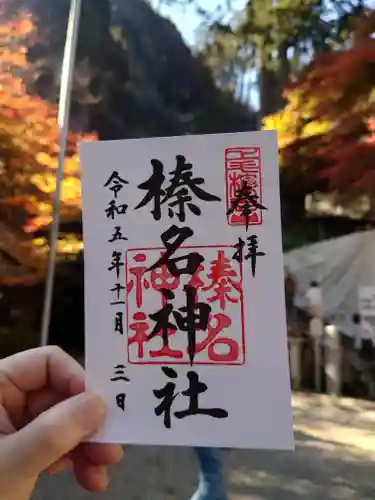 奉拝
榛名神社
榛名
神社
令和五年十一月三日